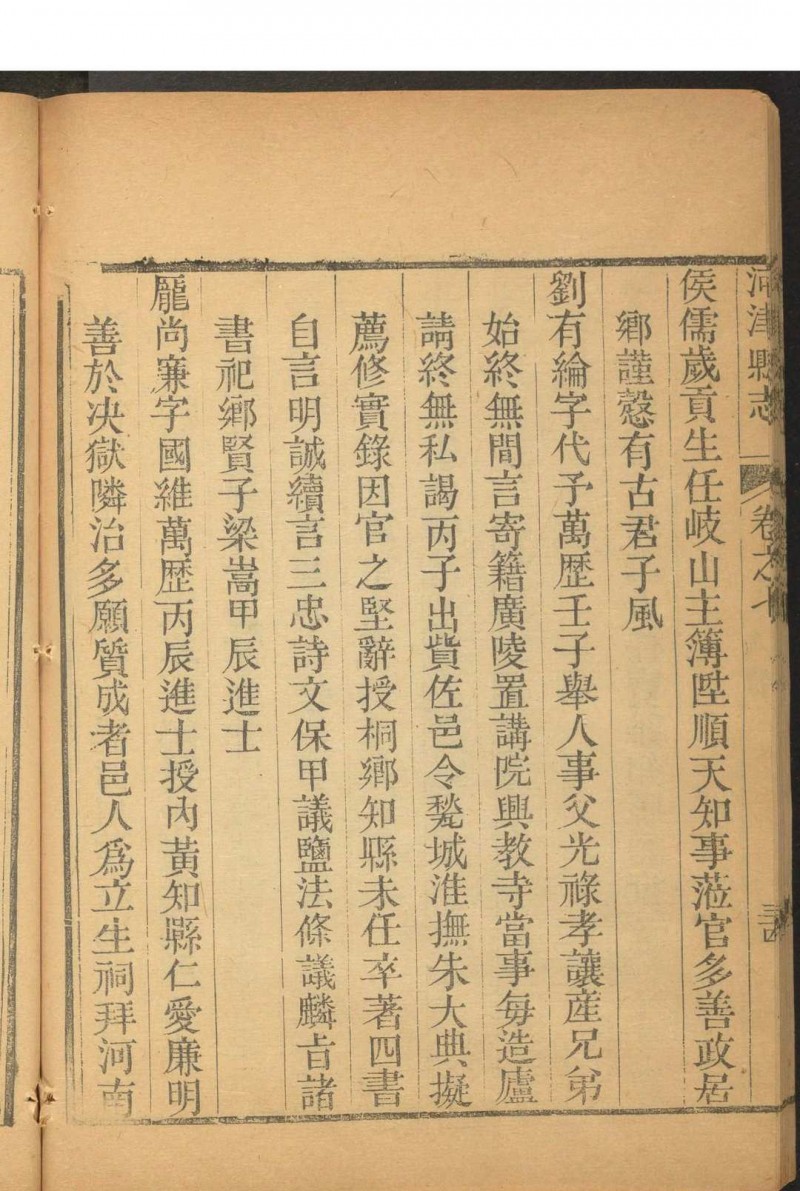 河津縣志
卷之七
侯儒歲貢生任岐山主簿陞順天知事蒞官多善政居
鄉謹愨有古君子風
劉有綸字代予萬歷壬子舉人事父光祿孝讓産兄弟
始終無間言寄籍廣陵置講院興教寺當事每造廬
請終無私謁丙子出貲佐邑令甃城淮撫朱大典擬
薦修實錄因官之堅辭授桐鄉知縣未任卒著四書
自言明誠續言三忠詩文保甲議鹽法條議麟旨諸
書祀鄉賢子梁嵩甲辰進士
龎尚亷字國維萬歷丙辰進士授內黃知縣仁愛廉明
善於决獄隣治多願質成者邑人爲立生祠拜河南